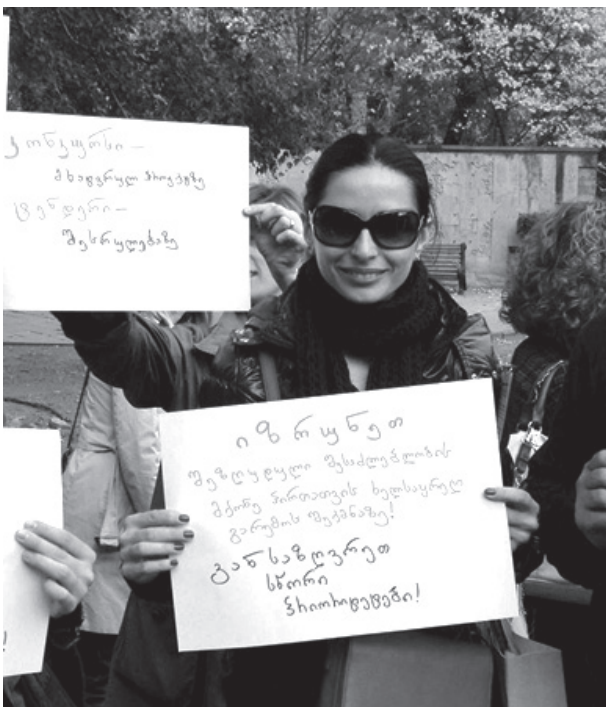 კონკურსი —
მხატვრულ პროექტზე
ტენდერი —
შესრულებაზე
იზრუნეთ
შეზღუდული შესაძლებლობის
მქონე პირთათვის ხელსაყრელ
გარემოს შექმნაზე!
განსაზღვრეთ
სწორი
პრიორიტეტები!
!